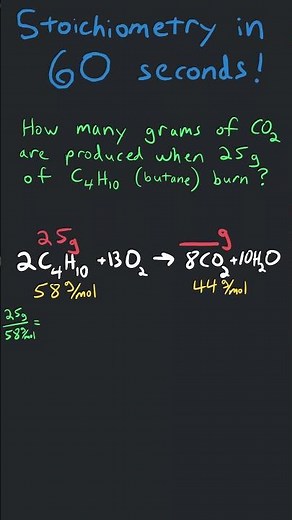 Stoichiometry in
60 seconds!
How many grams of CO₂
are produced when 25g
of C₄H₁₀ (butane) burn?
25g __g
2C₄H₁₀ + 13O₂ → 8CO₂ + 10H₂O
58 g/mol 44 g/mol
25g
58 g/mol =